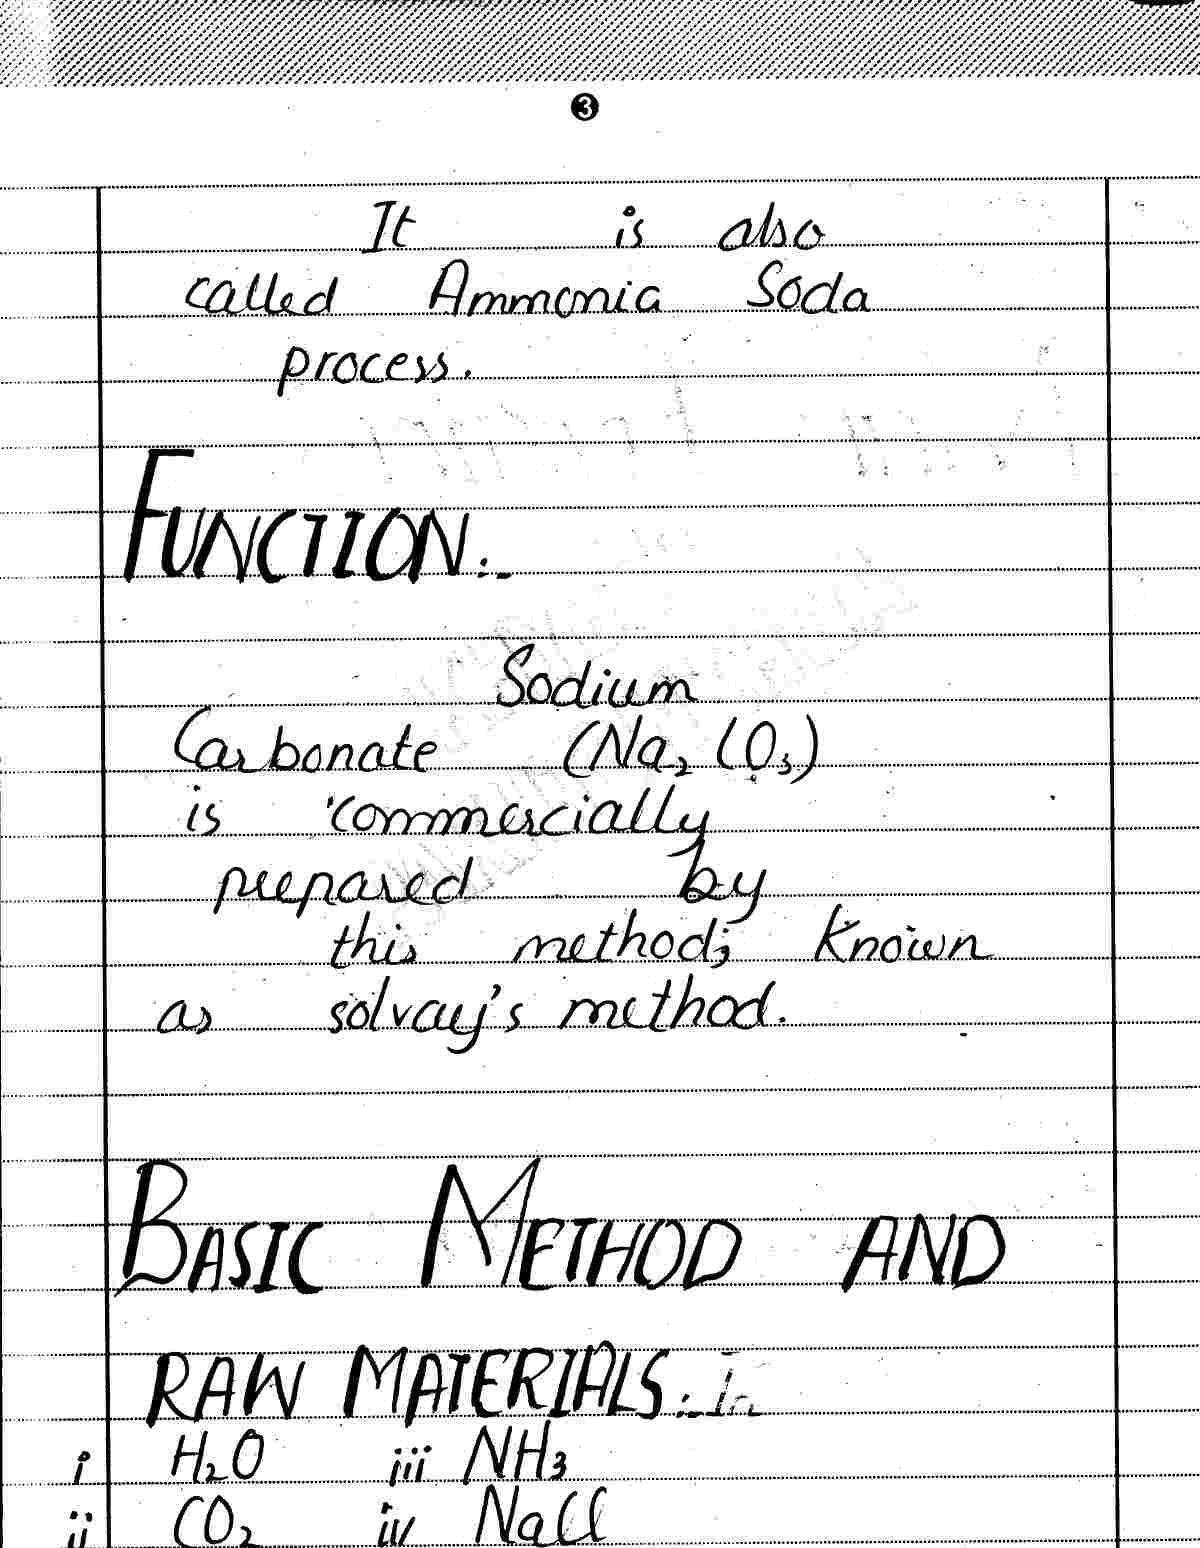 3
It is also
called Ammonia Soda
process.
FUNCTION:-
Sodium
Carbonate (Na₂CO₃)
is commercially
prepared by
this method; Known
as solvay's method.
BASIC METHOD AND
RAW MATERIALS:- In
i H₂O iii NH₃
ii CO₂ iv NaCl